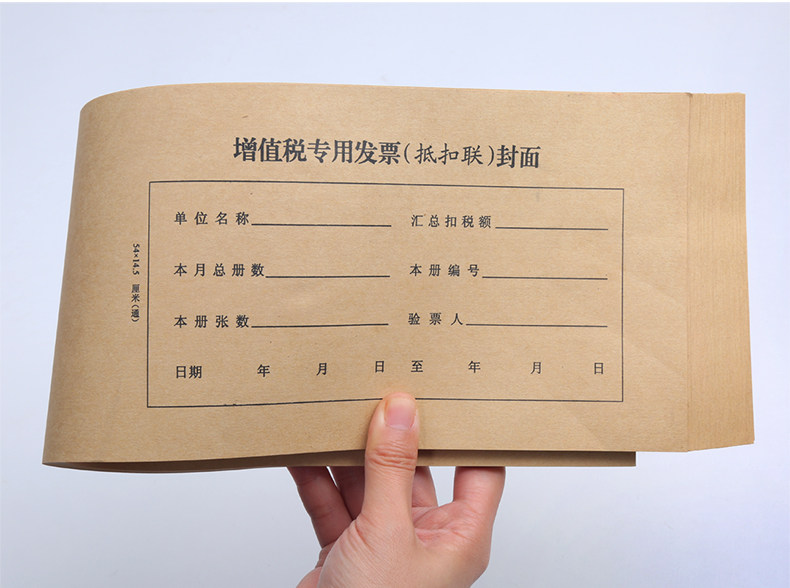 增值税专用发票(抵扣联)封面
单位名称 汇总扣税额
本月总册数 本册编号
本册张数 验票人
日期 年 月 日 至 年 月 日
54×14.5 厘米(通)